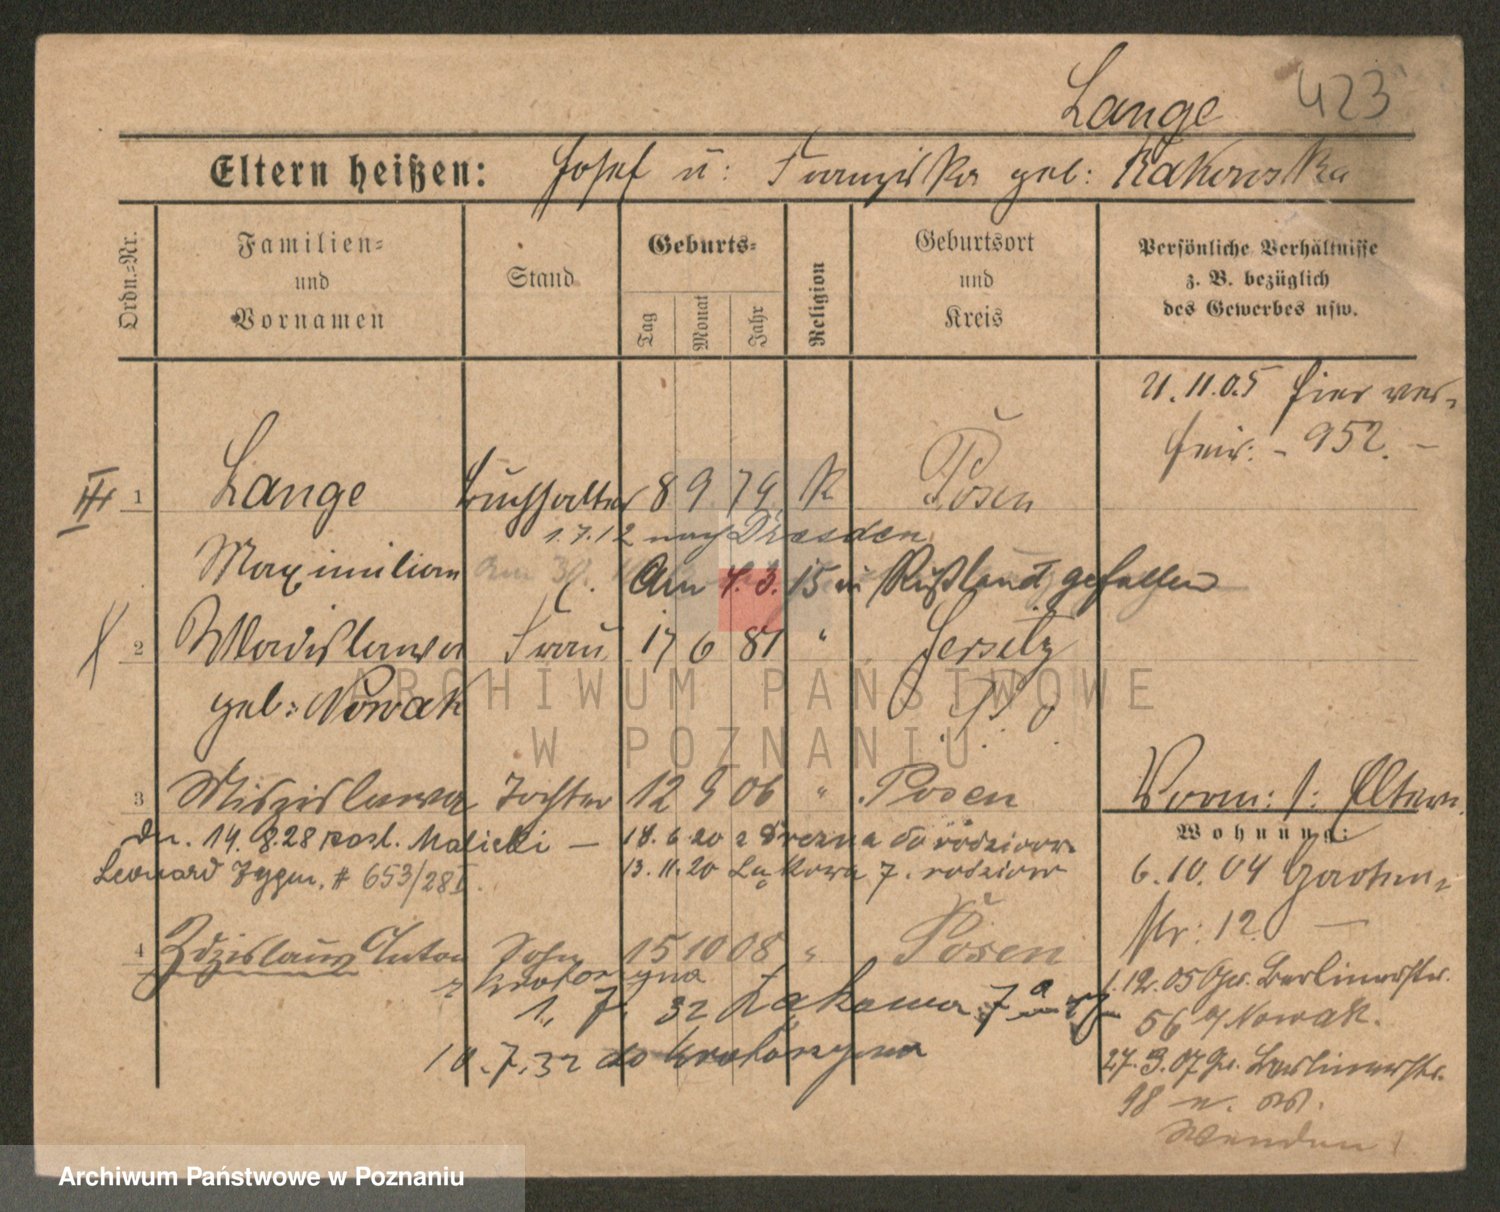 Lange 423
Eltern heißen: Josef u: Franziska geb: Rakowska
Ordn.=Nr.
Familien=
und
Vornamen
Stand
Geburts=
Tag Monat Jahr
Religion
Geburtsort
und
Kreis
Persönliche Verhältnisse
z. B. bezüglich
des Gewerbes usw.
21.11.05 hier ver-
heir: - 952. -
III 1 Lange Buchhalter 8 9 79 K Posen
1.7.12 nach Dresden
Maximilian Am 4.3.15 in Rußland gefallen
2 Wladislawa Frau 17 6 81 " Jersitz
geb: Nowak
3 Miszislawa Tochter 12 9 06 " Posen
Vorm: s: Eltern
Wohnung:
Dn. 14.8.28 posl. Malicki — 18.6.20 z Drezna do rodziców
Leonard Zygm. # 653/28 I. 13.11.20 Łąkowa 7. rodziców
6.10.04 Garten-
str: 12. —
4 Zdzislaus Anton Sohn 15 10 08 " Posen
z Krotoszyna
1. 7. 32 Łąkowa 7a
1.12.05 Gr. Berlinerstr.
56 b/ Nowak.
10.7.32 do Krotoszyna
27.3.07 Gr. Berlinerstr.
98
Wenden
ARCHIWUM PAŃSTWOWE
W POZNANIU
Archiwum Państwowe w Poznaniu